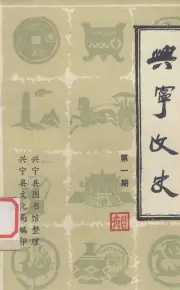 興寧文史
第一期
兴宁县图书馆整理
兴宁县文化局编印